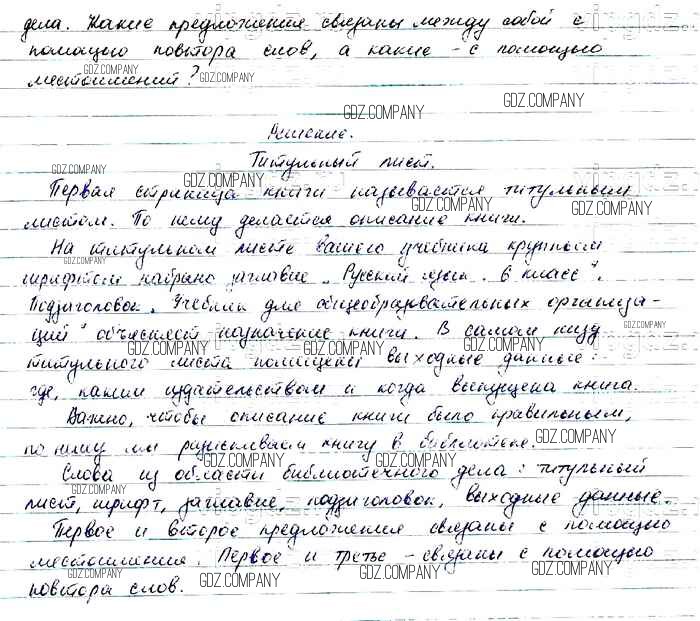 дела. Какие предложения связаны между собой с
помощью повтора слов, а какие - с помощью
местоимений?
GDZ.COMPANY GDZ.COMPANY
GDZ.COMPANY GDZ.COMPANY
Решение.
Титульный лист.
GDZ.COMPANY GDZ.COMPANY
Первая страница книги называется титульным
GDZ.COMPANY GDZ.COMPANY
листом. По нему делается описание книги.
На титульном листе вашего учебника крупным
GDZ.COMPANY
шрифтом набрано заглавие „Русский язык. 6 класс".
Подзаголовок „Учебник для общеобразовательных организа-
ций" объясняет назначение книги. В самом низу
GDZ.COMPANY GDZ.COMPANY GDZ.COMPANY GDZ.COMPANY
титульного листа помещены выходные данные:
где, каким издательством и когда выпущена книга.
Важно, чтобы описание книги было правильным,
по нему мы разыскиваем книгу в библиотеке.
GDZ.COMPANY GDZ.COMPANY GDZ.COMPANY
Слова из области библиотечного дела: титульный
GDZ.COMPANY
лист, шрифт, заглавие, подзаголовок, выходные данные.
Первое и второе предложения связаны с помощью
местоимения. Первое и третье - связаны с помощью
GDZ.COMPANY GDZ.COMPANY GDZ.COMPANY GDZ.COMPANY
повтора слов.